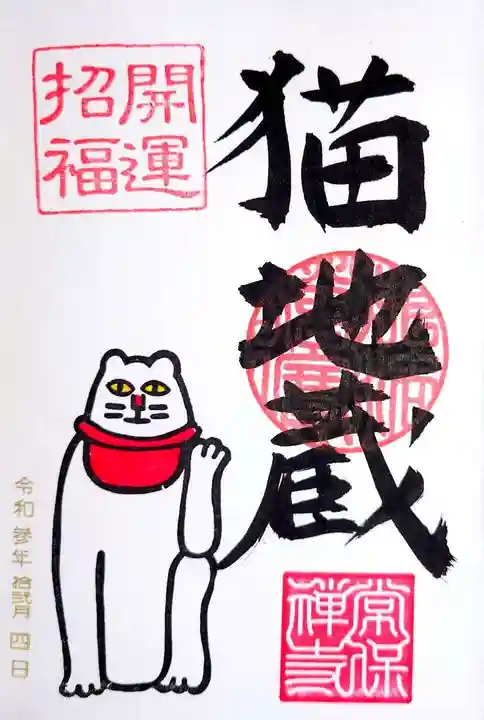 開運
招福
猫地蔵
常保
禅寺
令和参年拾弐月四日